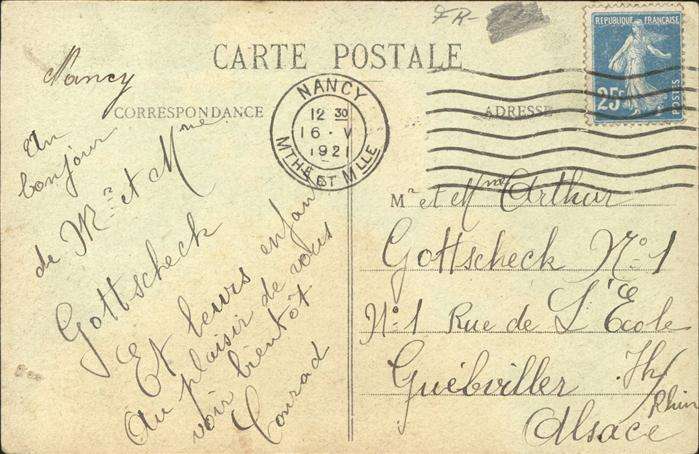 FR-
CARTE POSTALE
CORRESPONDANCE
ADRESSE
REPUBLIQUE FRANÇAISE
25c
POSTES
NANCY
12 30
16 - V
1921
MTHE ET MLLE
Nancy
Un
bonjour
de Mr et Mme
Gottscheck
Et leurs enfan
Au plaisir de vous
voir bientôt
Conrad
Mr et Mme Arthur
Gottscheck No 1
No 1 Rue de L'Ecole
Guébviller
Rhin
Alsace